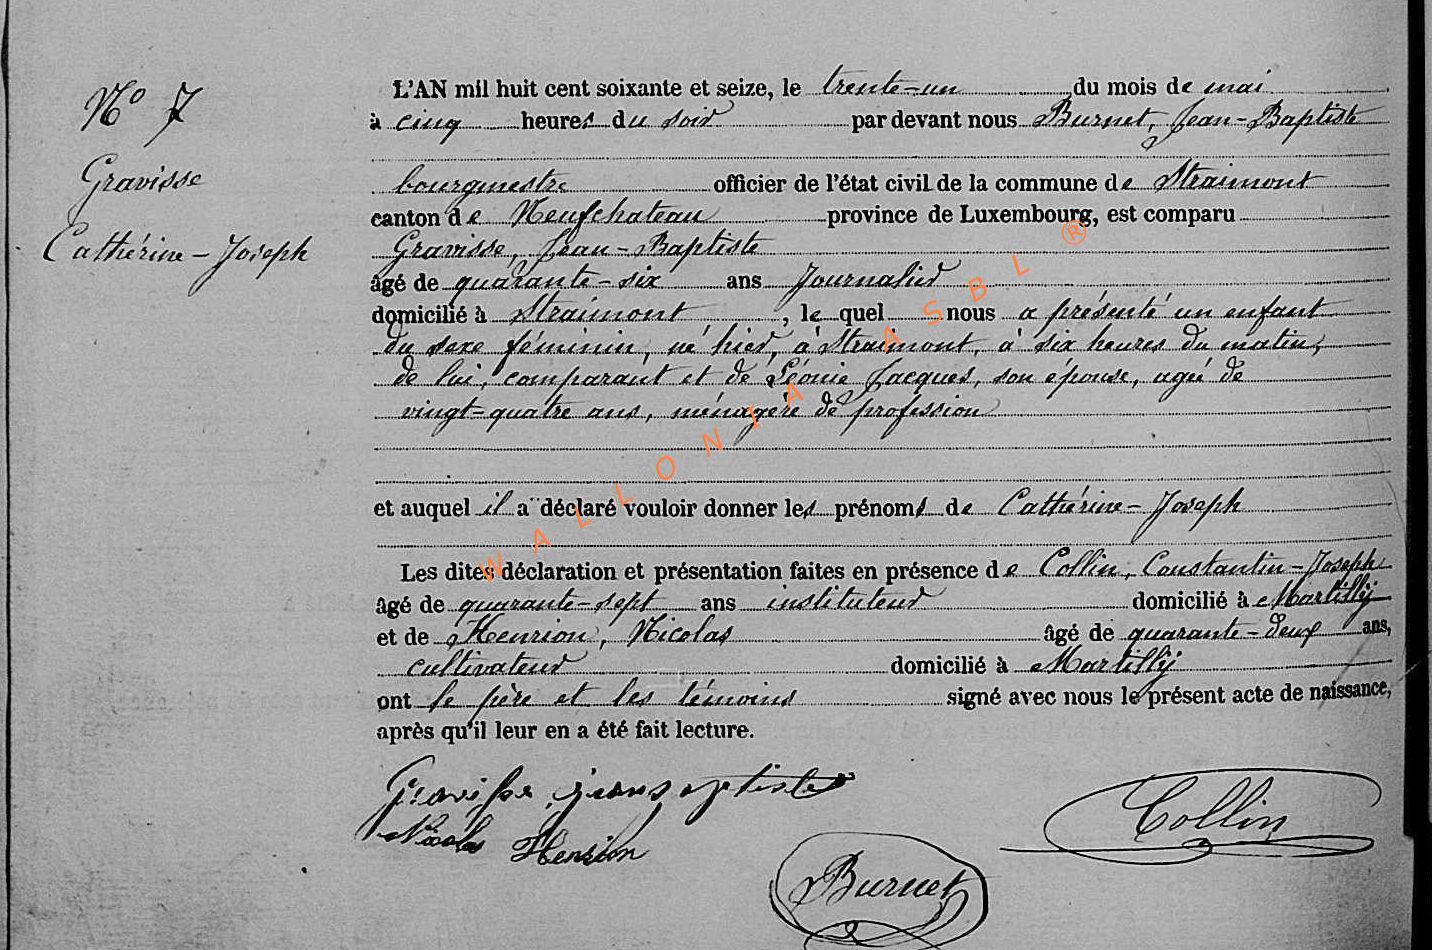 N° 7
Gravisse
Cathérine - Joseph
L'AN mil huit cent soixante et seize, le trente-un du mois de mai
à cinq heures du soir par devant nous Burnet, Jean-Baptiste
bourgmestre officier de l'état civil de la commune de Straimont
canton de Neufchateau province de Luxembourg, est comparu
Gravisse, Jean-Baptiste
âgé de quarante-six ans Journalier
domicilié à Straimont, lequel nous a présenté un enfant
du sexe féminin, né hier, à Straimont, à six heures du matin,
de lui, comparant et de Léonie Jacques, son épouse, agée de
vingt-quatre ans, ménagère de profession
et auquel il a déclaré vouloir donner les prénoms de Cathérine-Joseph
Les dites déclaration et présentation faites en présence de Collin, Constantin-Joseph
âgé de quarante-sept ans instituteur domicilié à Martilly
et de Henrion, Nicolas âgé de quarante-deux ans,
cultivateur domicilié à Martilly
ont le père et les témoins signé avec nous le présent acte de naissance,
après qu'il leur en a été fait lecture.
Gravisse jean baptiste
Nicolas Henrion
Collin
Burnet
WALLONIA ASBL ®